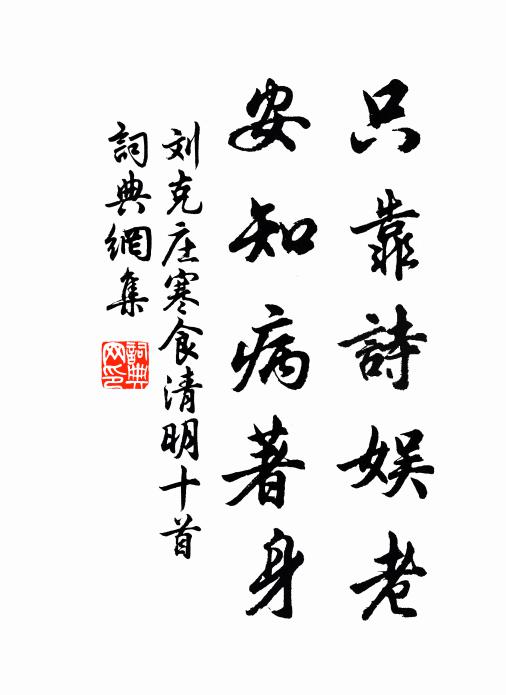 只靠詩娱老
安知病著身
刘克庄寒食清明十首
詞典網集
詞典网印